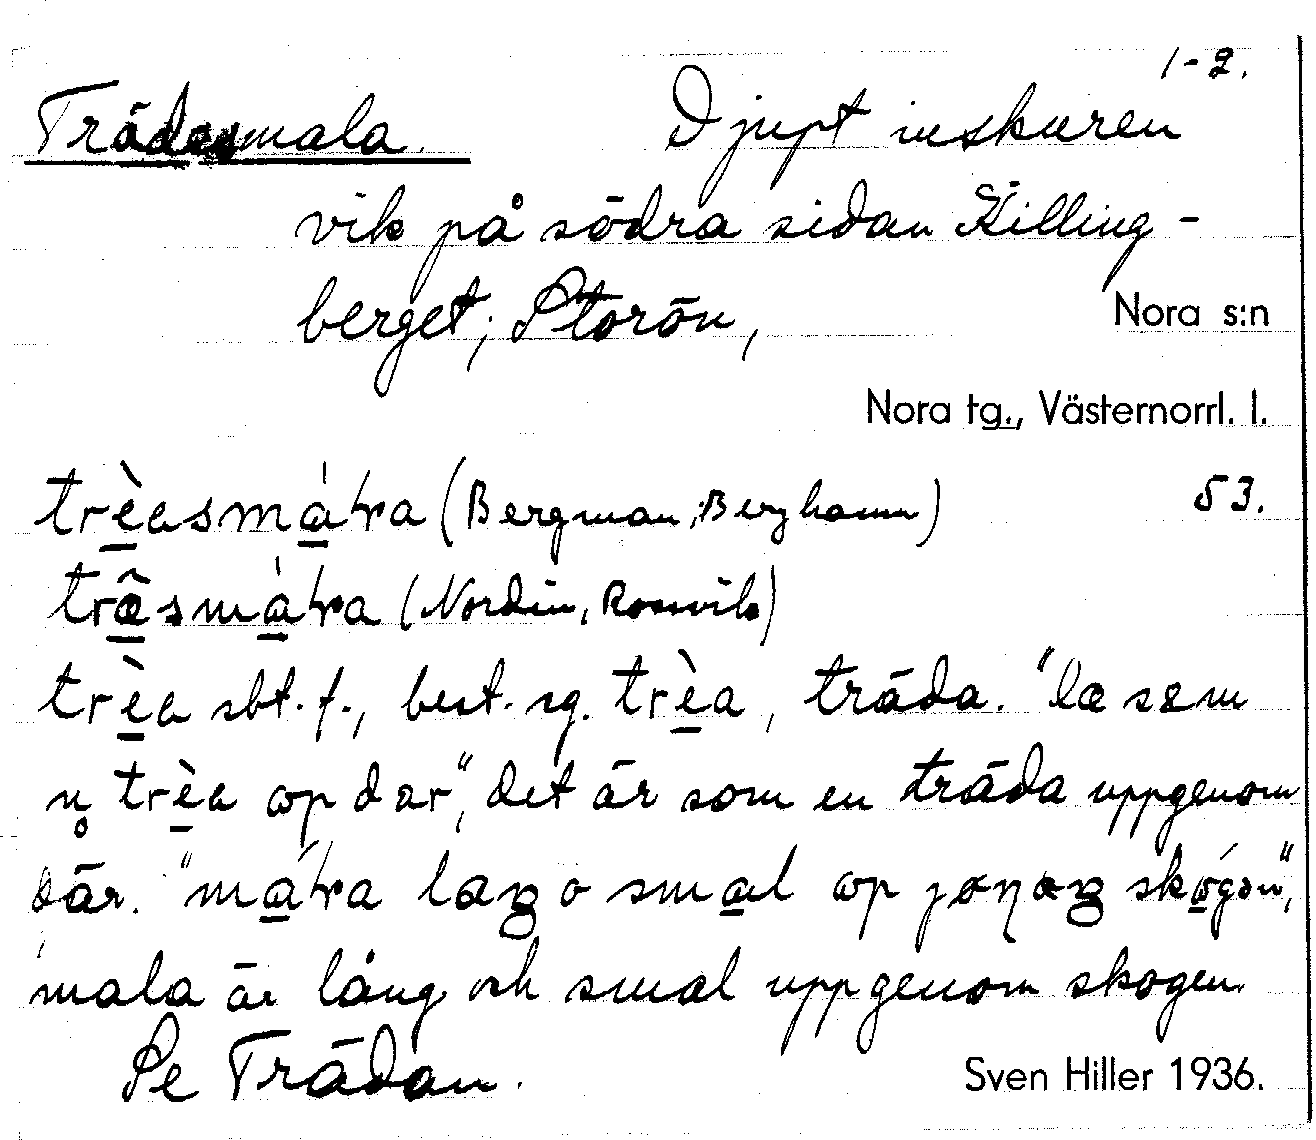 1-2.
Trädesmala. Djupt inskuren
vik på södra sidan Killing-
berget; Storön, Nora s:n
Nora tg., Västernorrl. l.
(Bergman, Berghamn) 53.
(Nordin, Rossvik)
trèa sbt. f., best. sg. trèa, träda. "læ sæm
trèa op dar", det är som en träda uppgenom
där. "
mala är lång och smal uppgenom skogen.
Se Trädan. Sven Hiller 1936.